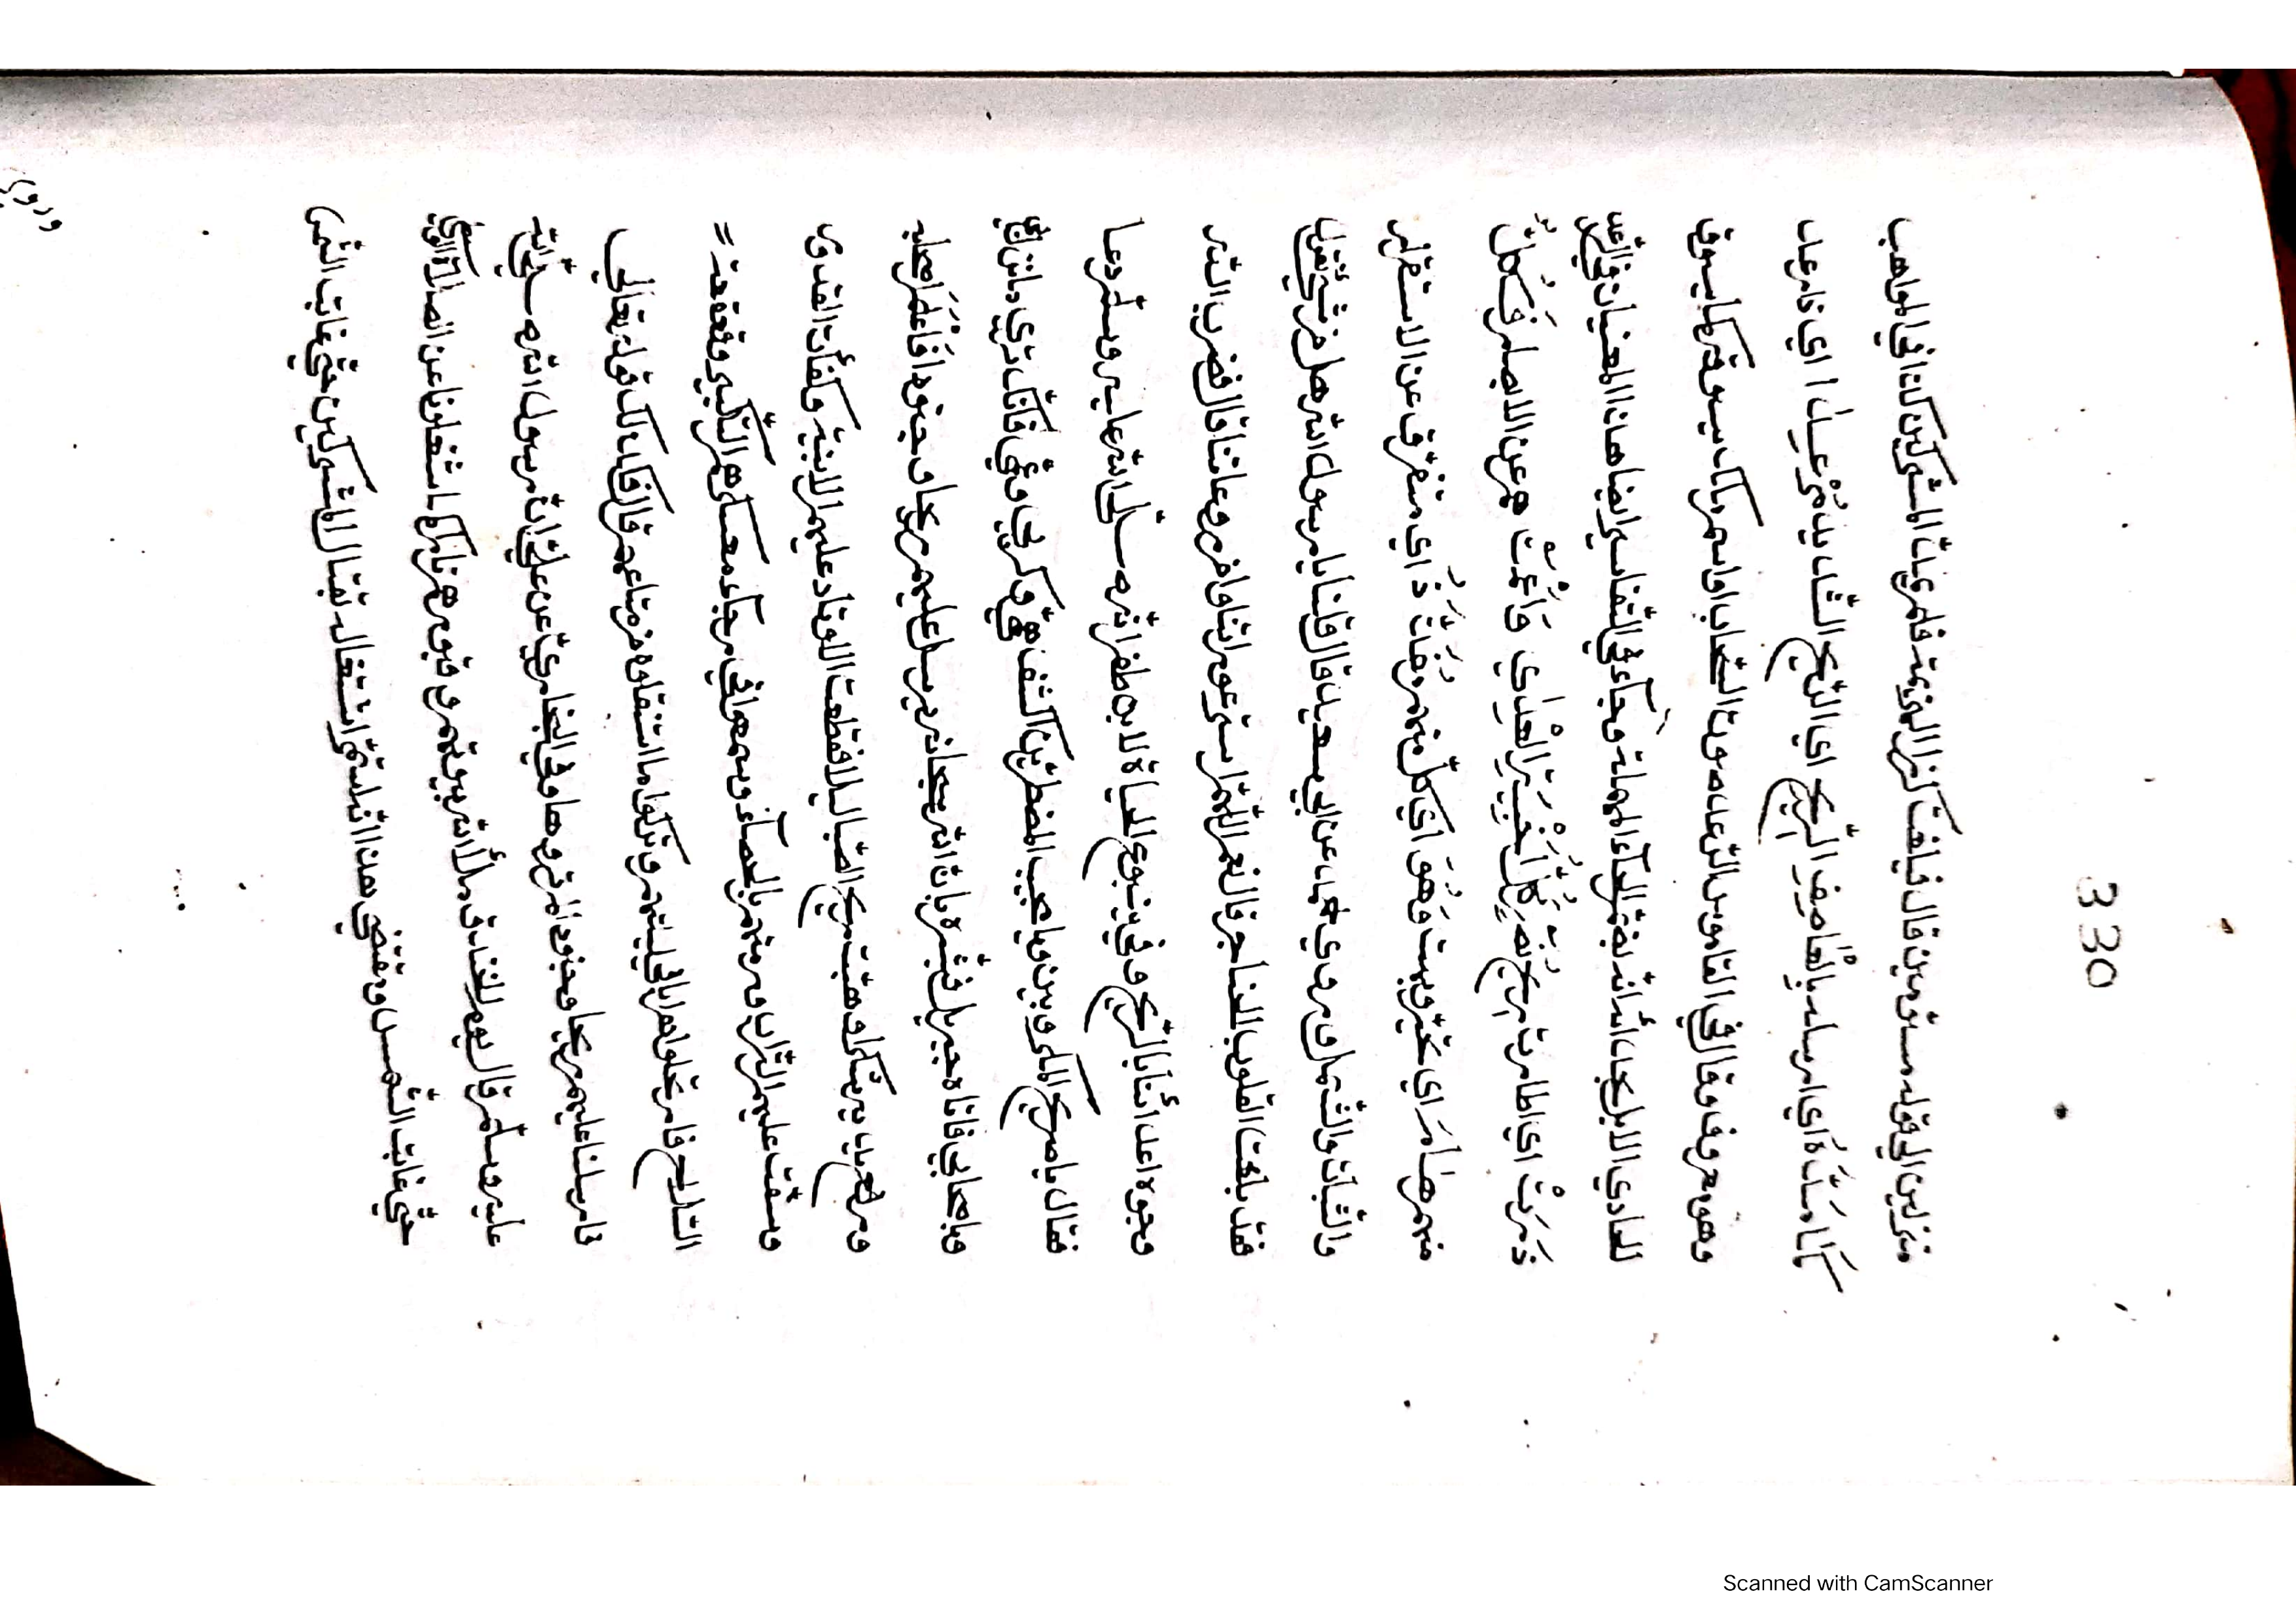 330
منزلين الى قوله مسوّمين قال فيلفتـ كنزا لهزيمة قلم عينت المشركين كذا في المواهب
كَامِدَّةً اي ارساله بالعاصِفِ الرّيح اي الرّيح الشّديدةِ عسلا اي ذا رعد
وهو معروف وقال في القاموس الرّعد صوت السّحاب او اسم ملك يسوقه كما يسوق
الحادي الابل بحدأته بضمّ الحاء المهملة وجاء في التّفاسير ايضا هذا المعنيان في الرّعد
ذَرَتْ اي اطارت رِيحٌ بِهِ كُلَّ خَبِيثِ الهدي وَاجْتُثَّ هم عن الاصل فَكُلٌّ
منهم طامَر اي متحيّر وبيت وَهْوَ اي كلّ منهم رُفَاتٌ ذُرّ اي متفرق عن الاستقرار
والثّبات والشّمل وروي احمد عن ابي سعيد قال قلنا يا رسول الله هل من شيئ نقول
فقد بلغت القلوب الحناجر قال نعم اللّهمّ استر عوراتنا وامن روعاتنا قال فضرب الله
وجوه اعدائنا بالرّيح وفي ينبوع الحياة لابن ظفر انّه صلّى الله عليه وسلّم دعا
فقال يا صريخ المكروبين ويا مجيب المضطرّين اكشف همّي وكربي وغمّي فانّك ترى ما نزل بي
وباصحابي فاتاه جبريل فبشّره بانّ الله سبحانه يرسل عليهم ريحا وجنودا فَاَعْلَمَ اصحابه
ورفع يديه شكرا وهبّت ريح الصّبا ليلا فقطعت الاوتاد عليهم الابنية وكفأت القدور
وسفت عليهم التّراب ورمتهم بالحصآء وسمعوا في ارجاء معسكرهم التّكبير وقعقعة =
السّلاح فارتحلوا هرابا في ليلتهم وتركوا ما استثقلوه من متاعهم قال فذلك قوله تعالى
فارسلنا عليهم ريحا وجنودا لم تروها وفي البخاريّ عن عليّ انّ رسول الله صلّى الله
عليه وسلّم قال يوم الخندق ملأ الله بيوتهم وقبورهم نارا كما شغلونا عن الصّلاة الوسطى
حتّى غابت الشّمس ومقتضى هذا انّه استمرّ اشتغاله بقتال المشركين حتّى غابت الشّمس
وروي
Scanned with CamScanner